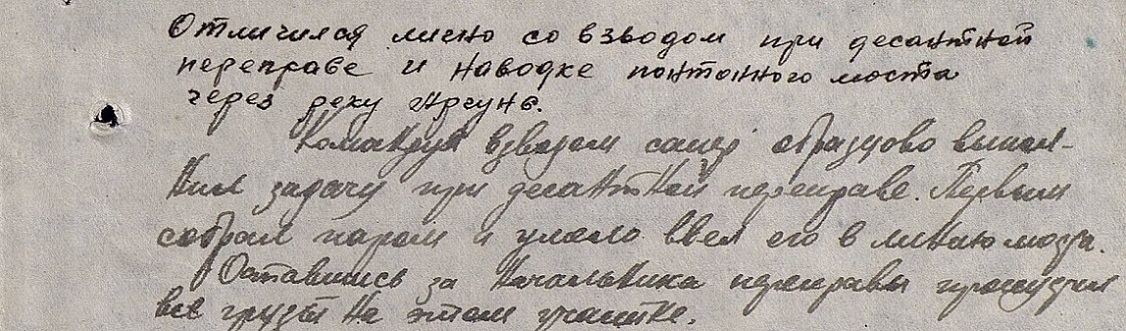 Отличился лично со взводом при десантной
переправе и наводке понтонного моста
через реку Аргунь.
Командуя взводом сапер образцово выпол-
нил задачу при десантной переправе. Первым
собрал паром и умело ввел его в линию моста.
Оставшись за начальника переправы пропустил
все грузы на этом участке.